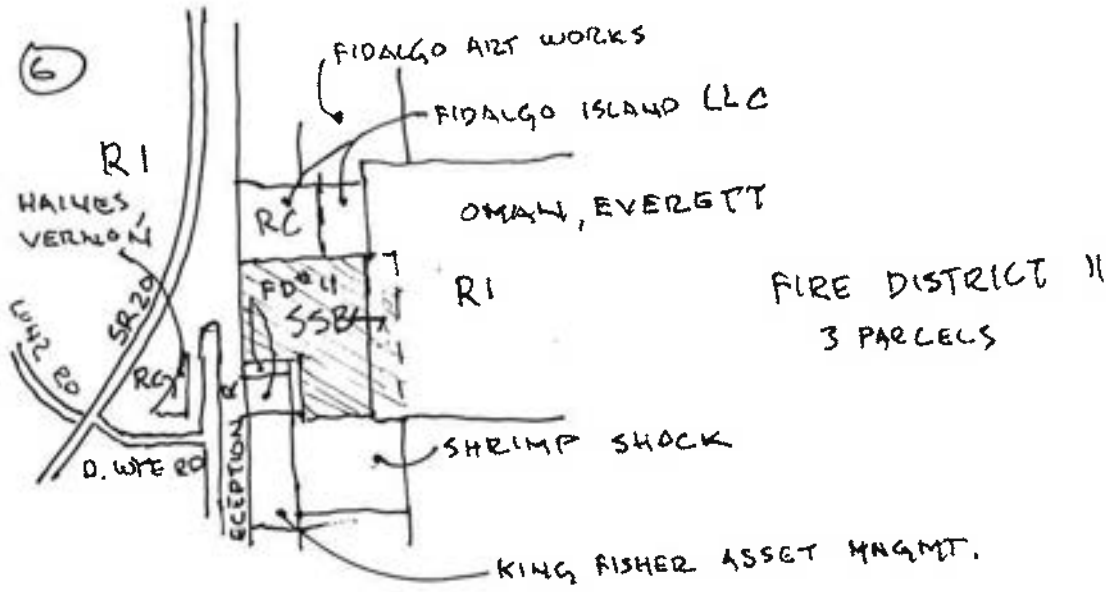 6
FIDALGO ART WORKS
FIDALGO ISLAND LLC
RI
HAINES,
VERNON
RC
OMAN, EVERETT
FD#11
SSB
RI
FIRE DISTRICT 11
3 PARCELS
SR20
RC
D. WYE RD
ECEPTION
SHRIMP SHOCK
KING FISHER ASSET MNGMT.